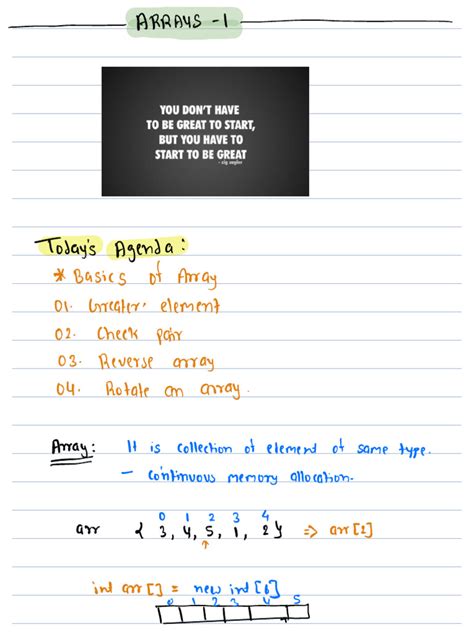 ARRAYS -1
YOU DON'T HAVE
TO BE GREAT TO START,
BUT YOU HAVE TO
START TO BE GREAT
- zig ziglar
Today's Agenda:
* Basics of Array
01. Greater element
02. Check pair
03. Reverse array
04. Rotate an array.
Array: It is collection of element of same type.
- continuous memory allocation.
0 1 2 3 4
arr { 3, 4, 5, 1, 2 } => arr[2]
int arr[] = new int[6]
0 1 2 3 4 5